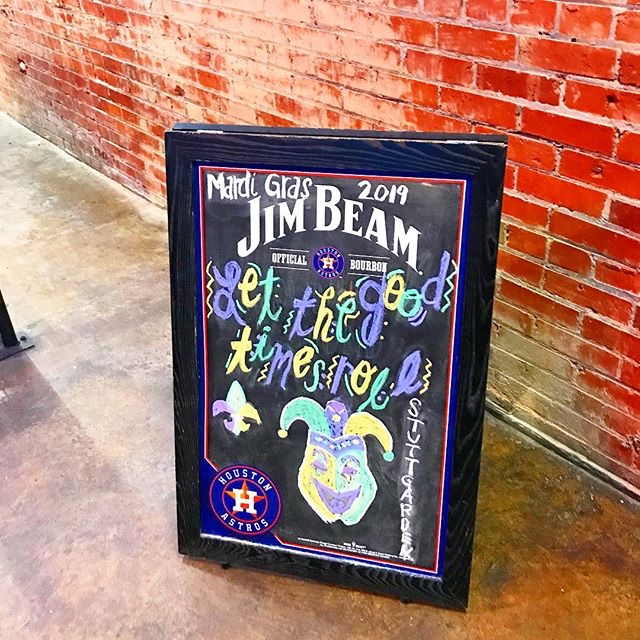 Mardi Gras 2019
JIM BEAM
OFFICIAL H BOURBON
Let the good
times roll
STUTTGARDEN
HOUSTON
H
ASTROS